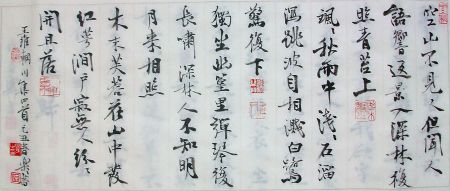 空山不見人但聞人
語響返景入深林復
照青苔上
颯々秋雨中淺々石溜
瀉跳波自相濺白鷺
驚復下
獨坐幽篁里彈琴復
長嘯深林人不知明
月來相照
木末芙蓉花山中發
紅萼澗戶寂無人紛々
開且落
王維輞川集四首